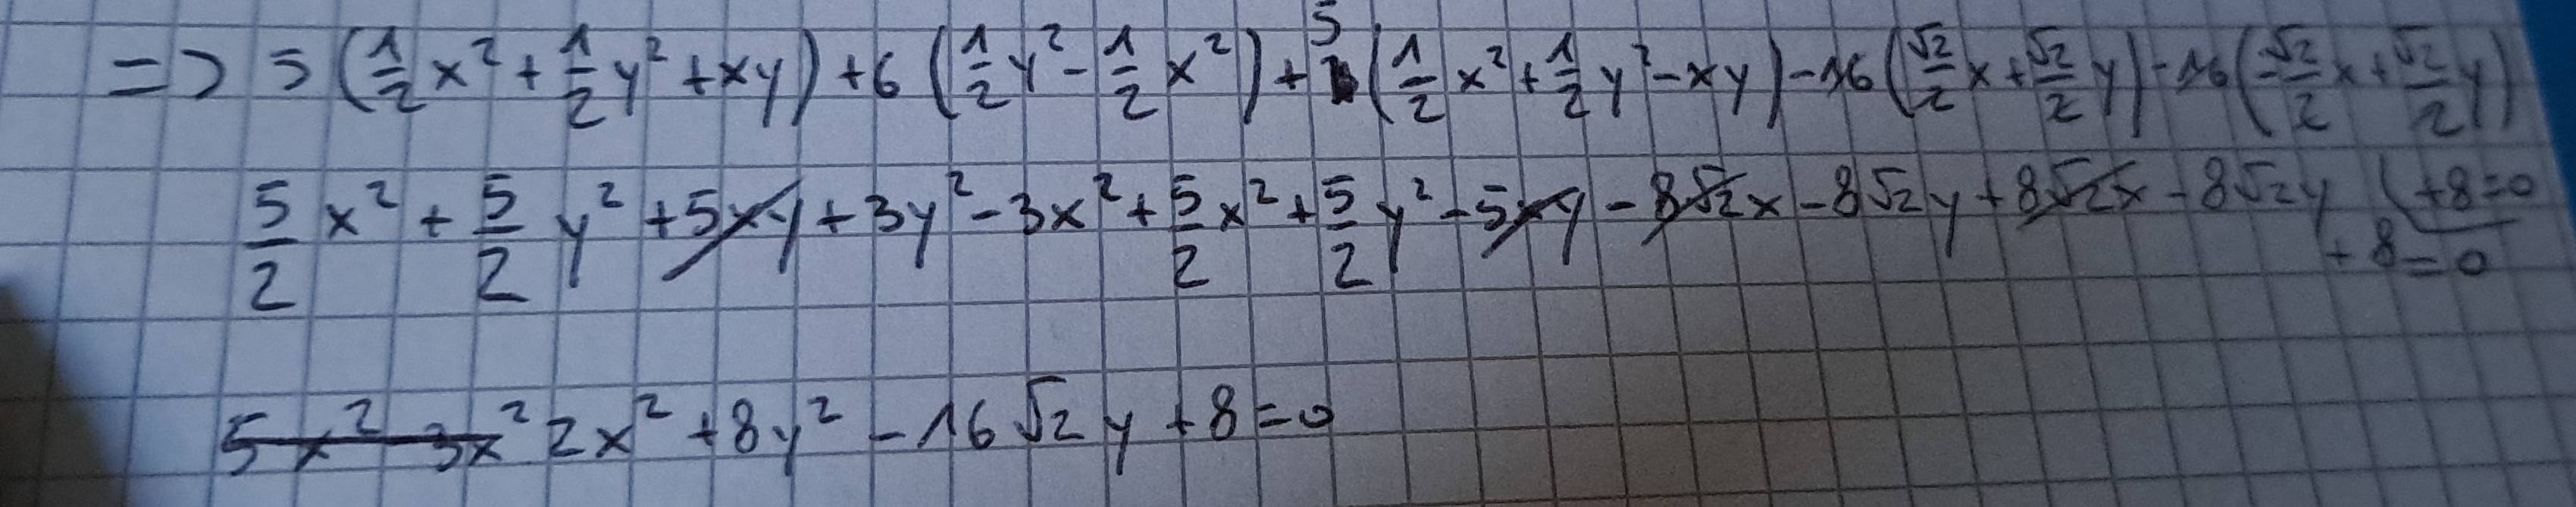 => 5 (1/2 x² + 1/2 y² + xy) + 6 (1/2 y² - 1/2 x²) + 5 (1/2 x² + 1/2 y² - xy) - 16 (√2/2 x + √2/2 y) - 16 (-√2/2 x + √2/2 y)
+8=0
5/2 x² + 5/2 y² + 5xy + 3y² - 3x² + 5/2 x² + 5/2 y² - 5xy - 8√2x - 8√2y + 8√2x - 8√2y
+ 8 = 0
5x² - 3x² 2x² + 8y² - 16√2 y + 8 = 0